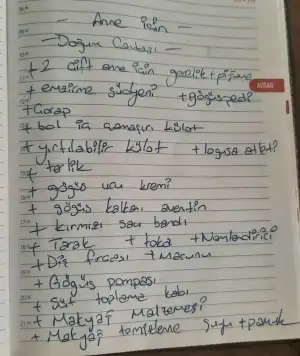 - Anne için -
- Doğum Çantası -
+ 2 çift anne için gecelik + pijama
+ emzirme südyeni + göğüs pedi
NİSAN
+ Çorap
+ bol iç çamaşırı külot
+ yırtılabilir külot + logusa atleti
+ terlik
+ göğüs ucu kremi
+ göğüs kalkanı
+ kırmızı saç bandı
+ Tarak + toka + Nemlendirici
+ Diş fırçası + Macunu
+ Göğüs pompası
+ Süt toplama kabı
+ Makyaj Malzemesi
+ Makyaj temizleme suyu + pamuk